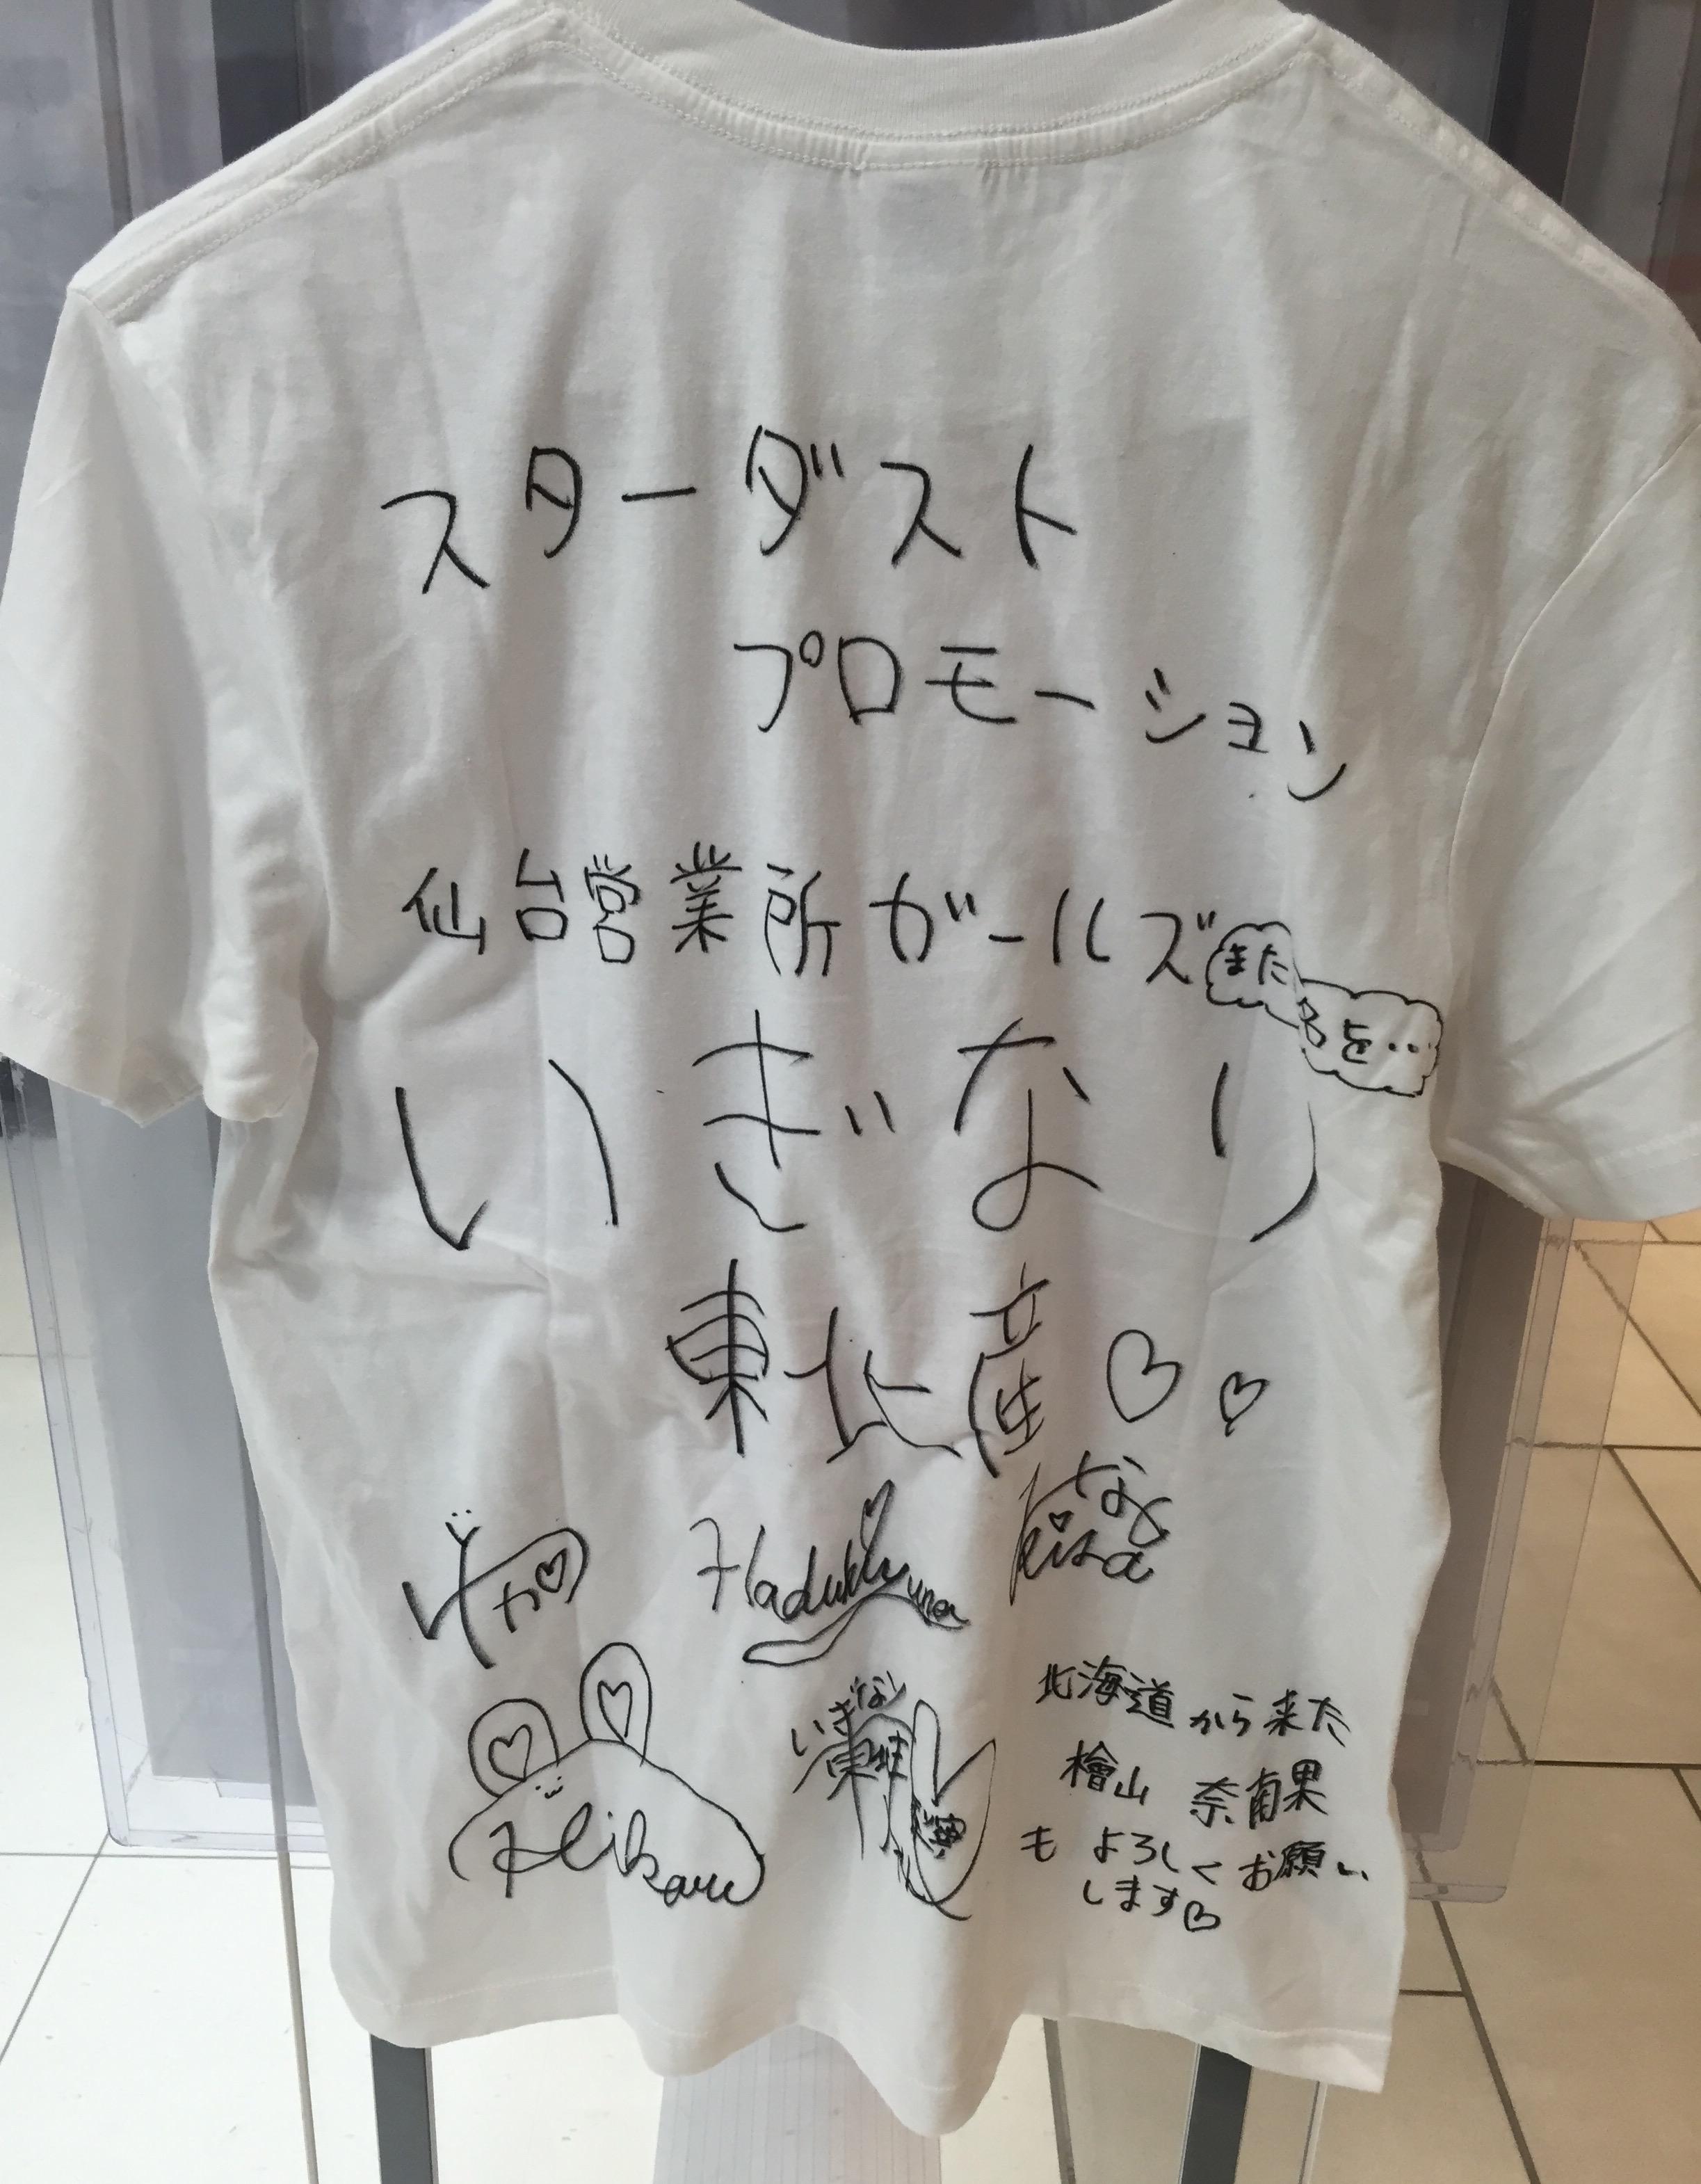 スターダスト
プロモーション
仙台営業所ガールズ
また
名を…
いぎなり
東北産♡♡
Hikaru
いぎなり
東北産
北海道から来た
檜山 奈南果
も よろしくお願い
します♡